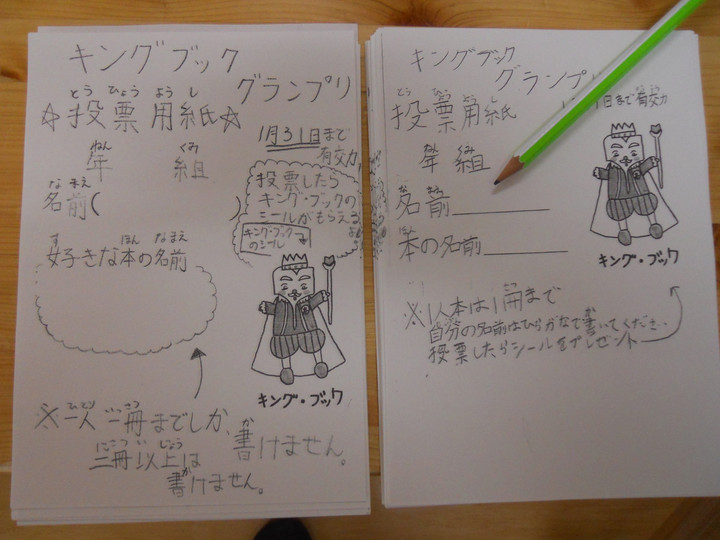 キングブック
グランプリ
とう ひょう よう し
☆投票用紙☆
1月31日まで
有効
ねん くみ
年 組
なまえ
名前( )
投票したら
キング・ブックの
シールがもらえる
よ
キング・ブック
のシール
す ほん なまえ
好きな本の名前
キング・ブック
ひとり いっさつ か
※一人一冊までしか、書けません。
にさつ い じょう
二冊以上は
か
書けません。
キングブック
グランプリ
とう ひょう
投票用紙
1日まで有効
年 組
名前
本の名前
キング・ブック
※1人本は1冊まで
自分の名前はひらがなで書いてください
投票したらシールをプレゼント